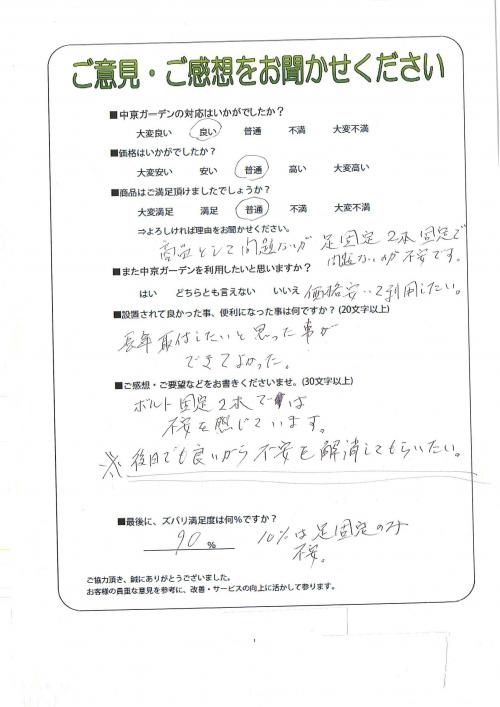 ご意見・ご感想をお聞かせください
■中京ガーデンの対応はいかがでしたか？
大変良い 良い 普通 不満 大変不満
■価格はいかがでしたか？
大変安い 安い 普通 高い 大変高い
■商品はご満足頂けましたでしょうか？
大変満足 満足 普通 不満 大変不満
⇒よろしければ理由をお聞かせください。
商品として問題ないが 足固定 2本固定で
問題ないのが不安です。
■また中京ガーデンを利用したいと思いますか？
はい どちらとも言えない いいえ 価格安いで利用したい。
■設置されて良かった事、便利になった事は何ですか？(20文字以上)
長年取付したいと思った事が
できてよかった。
■ご感想・ご要望などをお書きくださいませ。(30文字以上)
ボルト固定2本では
不安を感じています。
※後日でも良いから不安を解消してもらいたい。
■最後に、ズバリ満足度は何％ですか？
90 % 10%は足固定のみ
不安。
ご協力頂き、誠にありがとうございました。
お客様の貴重な意見を参考に、改善・サービスの向上に活かして参ります。
1